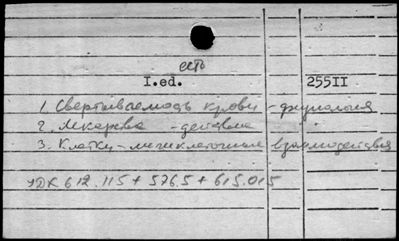 есть
I.ed. 255II
1. Свертываемость крови - физиология
2. Лекарства - действие
3. Клетки - межклеточные взаимодействия
УДК 612.115 + 576.5 + 615.015